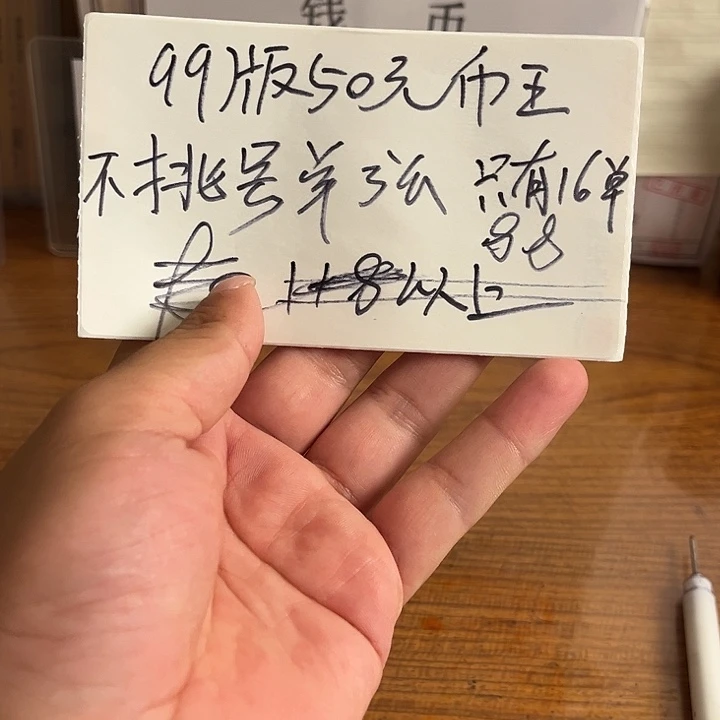 钱 币
99版50元币王
不挑号单张 只有16单
88
8以上